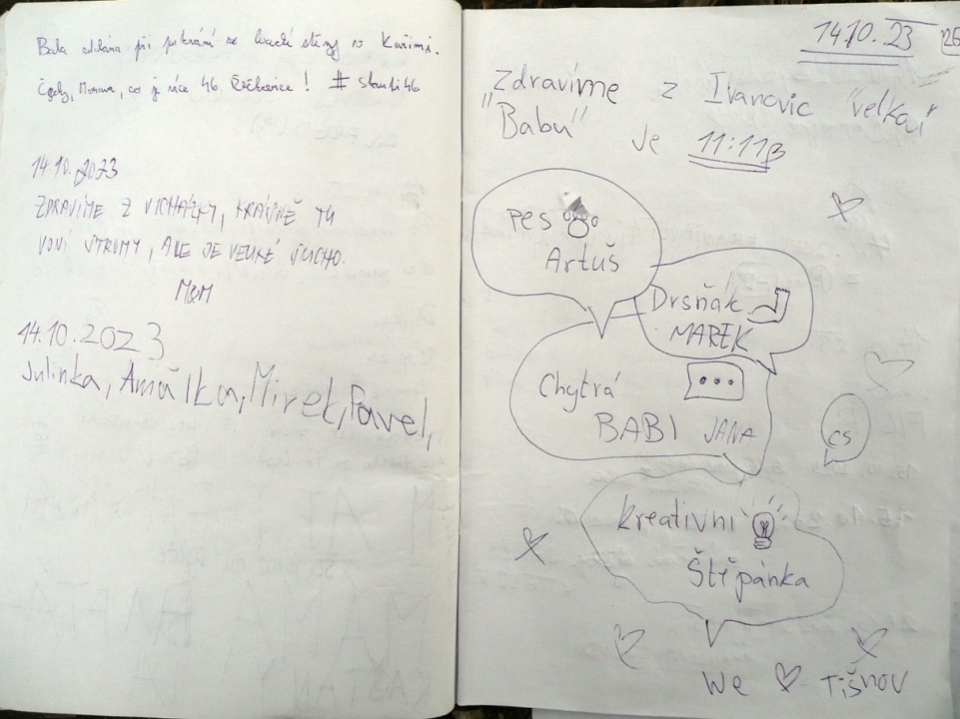 Baba při se hradí stěny v Kuřimi.
Čechy, Morava, co je více 46. Řečkovice! # standi46
14.10.2023
ZDRAVÍME Z VYCHÁZKY, KRÁSNĚ TU
VONÍ STROMY, ALE JE VELKÉ SUCHO.
M&M
14.10.2023
Julinka, Amálka, Mirek, Pavel,
14.10.23
Zdravíme z Ivanovic "velkou"
"Babu" Je 11:11
Pes
Artuš
Drsňák
MAREK
Chytrá
BABI JANA
cs
kreativní
Štěpánka
We ♡ TIŠNOV